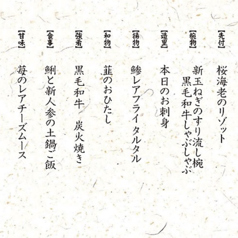 【先付】 桜海老のリゾット
【椀物】 新玉ねぎのすり流し椀
黒毛和牛しゃぶしゃぶ
【造里】 本日のお刺身
【揚物】 鯵レアフライ タルタル
【和物】 韮のおひたし
【強肴】 黒毛和牛 炭火焼き
【食事】 鯏と新人参の土鍋ご飯
【甘味】 苺のレアチーズムース